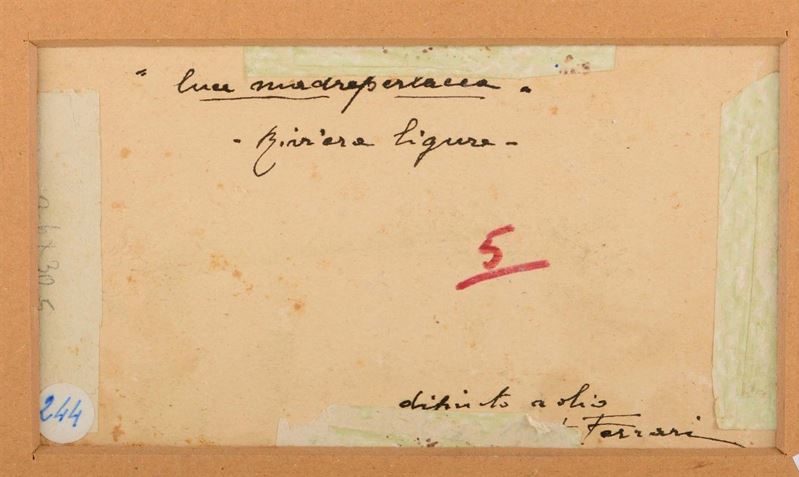 " luce madreperlacea "
- Riviera ligure -
5
dipinto a olio
Ferrari
244